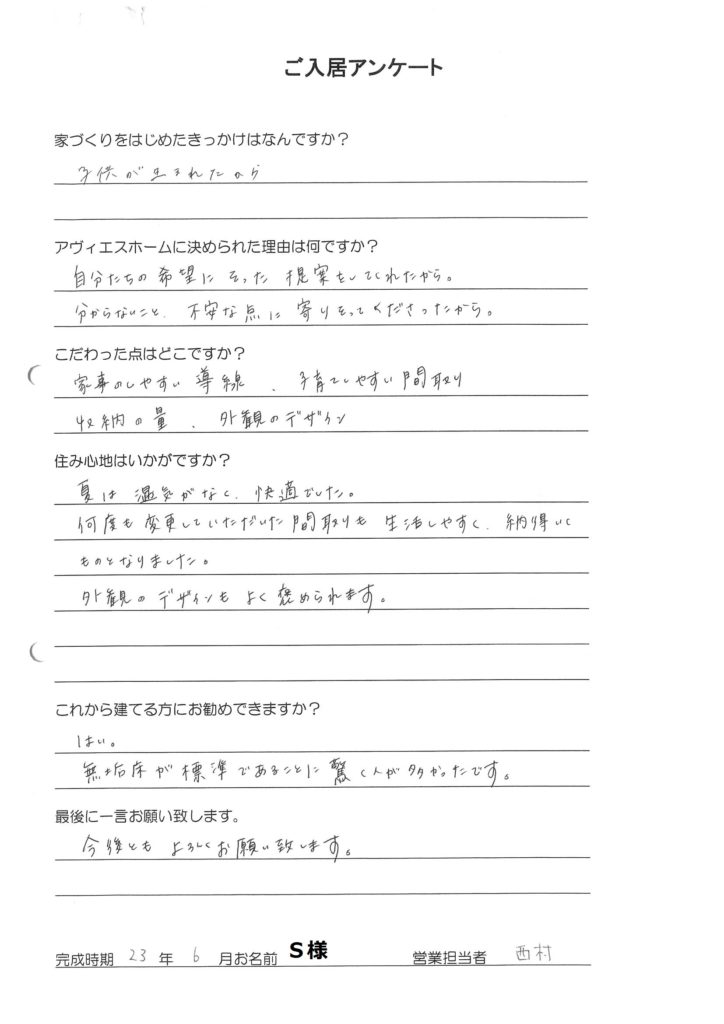 ご入居アンケート
家づくりをはじめたきっかけはなんですか？
子供が生まれたから
アヴィエスホームに決められた理由は何ですか？
自分たちの希望にそった 提案をしてくれたから。
分からないこと、不安な点に 寄りそってくださったから。
こだわった点はどこですか？
家事のしやすい 導線 、子育てしやすい間取り
収納の量 、外観のデザイン
住み心地はいかがですか？
夏は 湿気がなく、快適でした。
何度も変更していただいた間取りも 生活しやすく、納得いく
ものとなりました。
外観のデザインも よく褒められます。
これから建てる方にお勧めできますか？
はい。
無垢床が標準であることに驚く人が多かったです。
最後に一言お願い致します。
今後とも よろしくお願い致します。
完成時期 23 年 6 月お名前 S様 営業担当者 西村